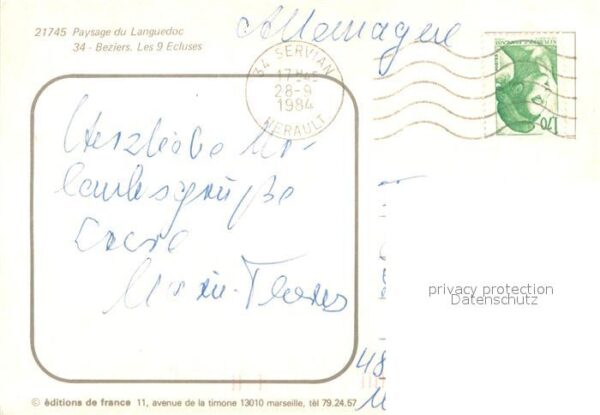 21745 Paysage du Languedoc
34 - Beziers. Les 9 Ecluses
Allemagne
34 SERVIAN
17H45
28-9
1984
HERAULT
1,70
Herzliche Ur-
laubsgrüße
Marie-
privacy protection
Datenschutz
48
M
© éditions de france 11, avenue de la timone 13010 marseille, tél 79.24.67